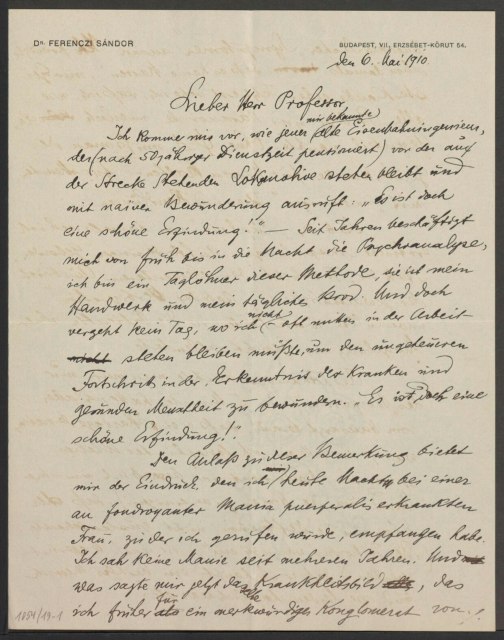 Dr. FERENCZI SÁNDOR
BUDAPEST, VII., ERZSÉBET-KÖRUT 54.
den 6. Mai 1910
Lieber Herr Professor,
mir bekannte
Ich komme mir vor, wie jener alte Eisenbahningenieur,
der (nach 50 jähriger Dienstzeit pensioniert) vor der auf
der Strecke stehenden Lokomotive stehen bleibt und
mit naiver Bewunderung ausruft: „Es ist doch
eine schöne Erfindung!" — Seit Jahren beschäftigt
mich von früh bis in die Nacht die Psychoanalyse,
ich bin ein Taglöhner dieser Methode, sie ist mein
Handwerk und mein tägliches Brod. Und doch
vergeht kein Tag, wo ich nicht – oft mitten in der Arbeit –
nicht stehen bleiben müßte, um den ungeheueren
Fortschritt in der Erkenntnis der kranken und
gesunden Menschheit zu bewundern. „Es ist doch eine
schöne Erfindung!".
Den Anlaß zu dieser Bemerkung bietet
mir der Eindruck, den ich heute Nacht bei einer
an foudroyanter Mania puerperalis erkrankten
Frau, zu der ich gerufen wurde, empfangen habe.
Ich sah keine Manie seit mehreren Jahren. Und
was sagte mir jetzt das Krankheitsbild, das
ich früher für ein merkwürdiges Konglomerat von
1054/19-1